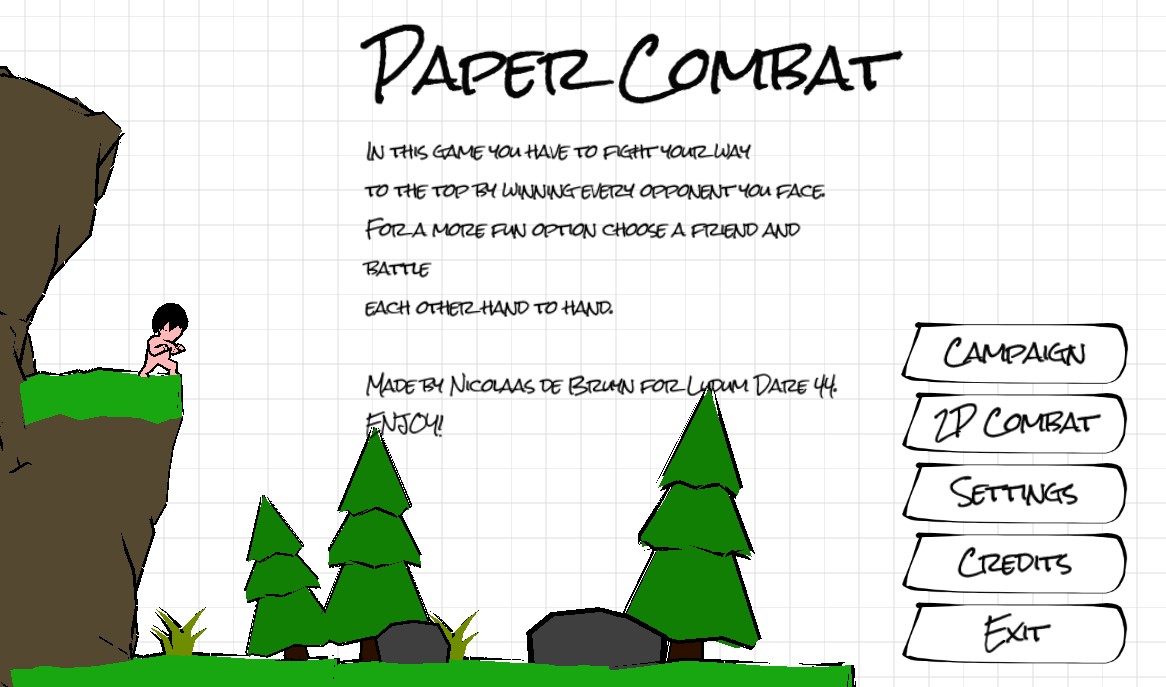 Paper Combat
In this game you have to fight your way
to the top by winning every opponent you face.
For a more fun option choose a friend and
battle
each other hand to hand.
Made by Nicolaas de Bruyn for Ludum Dare 44.
ENJOY!
Campaign
2P Combat
Settings
Credits
Exit